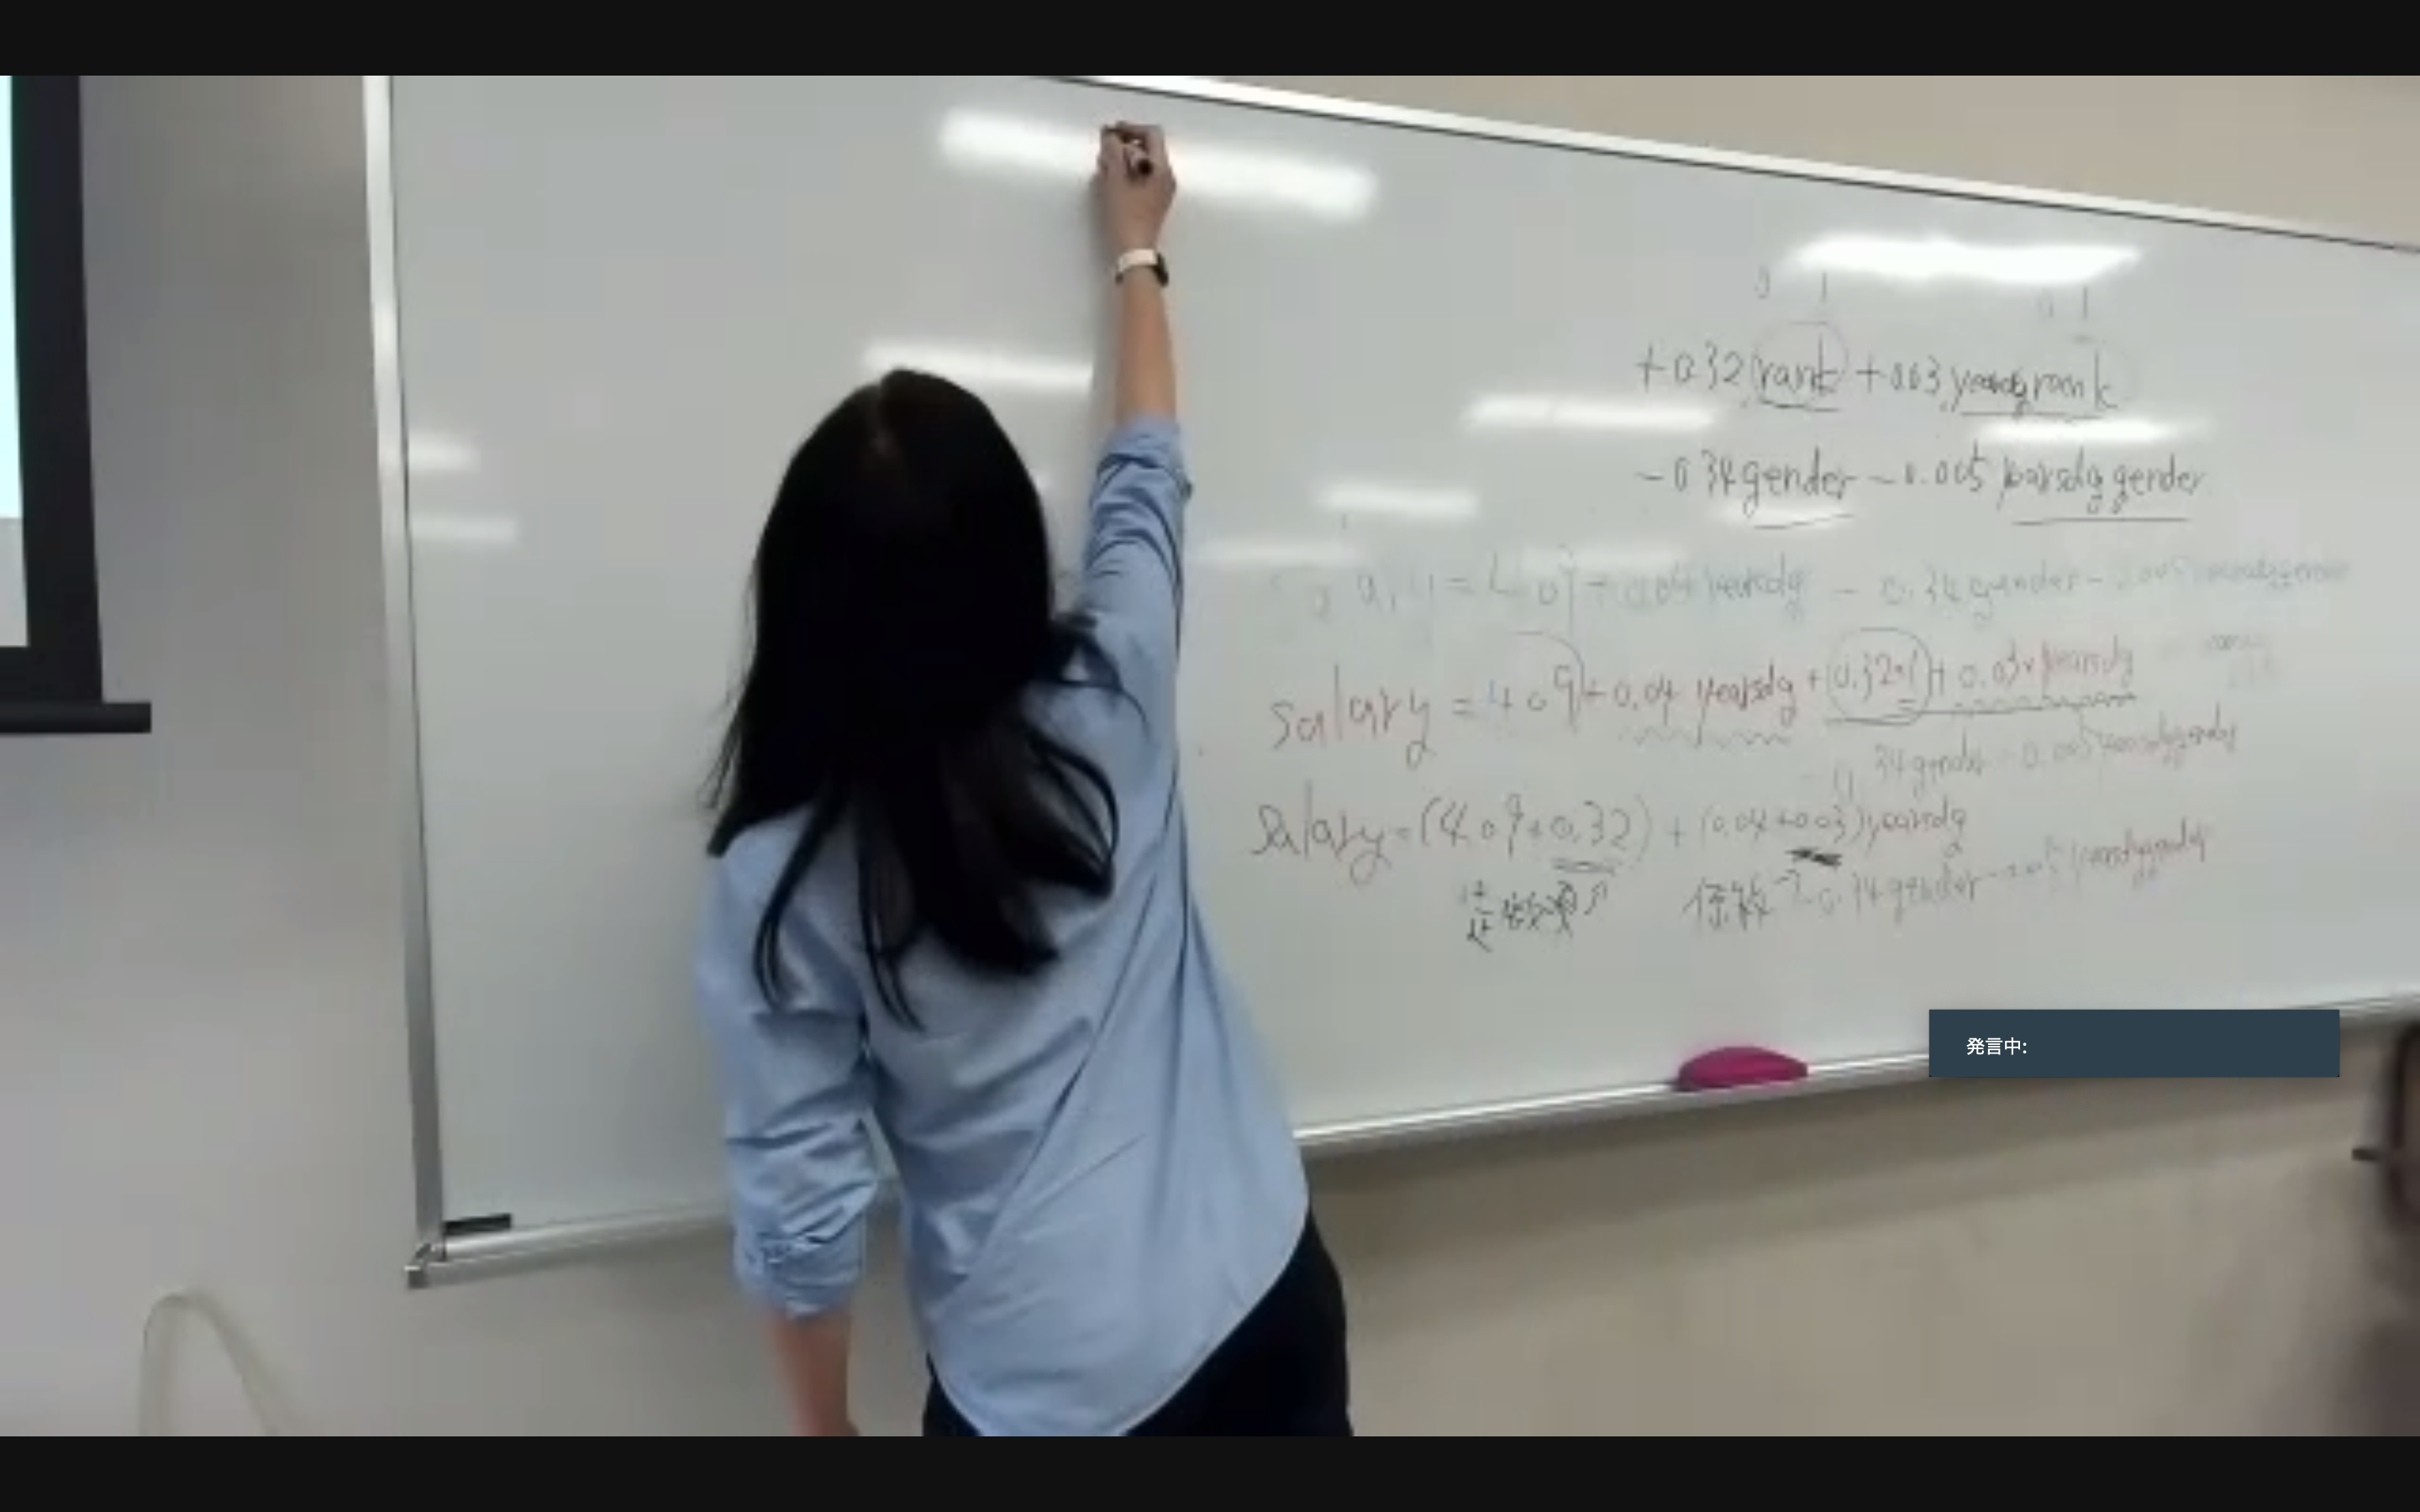 0 1 0 1
+0.32 rank + 0.03 yearsdg rank
- 0.34 gender - 0.005 yearsdg gender
= 4.09 + 0.04 yearsdg - 0.34 gender -
salary = 4.09 + 0.04 yearsdg + 0.32×1 + 0.03× yearsdg
34 gender - 0.005 yearsdg gender
Salary = (4.09+0.32) + (0.04+0.03) yearsdg
係数 - 0.34 gender -
発言中: